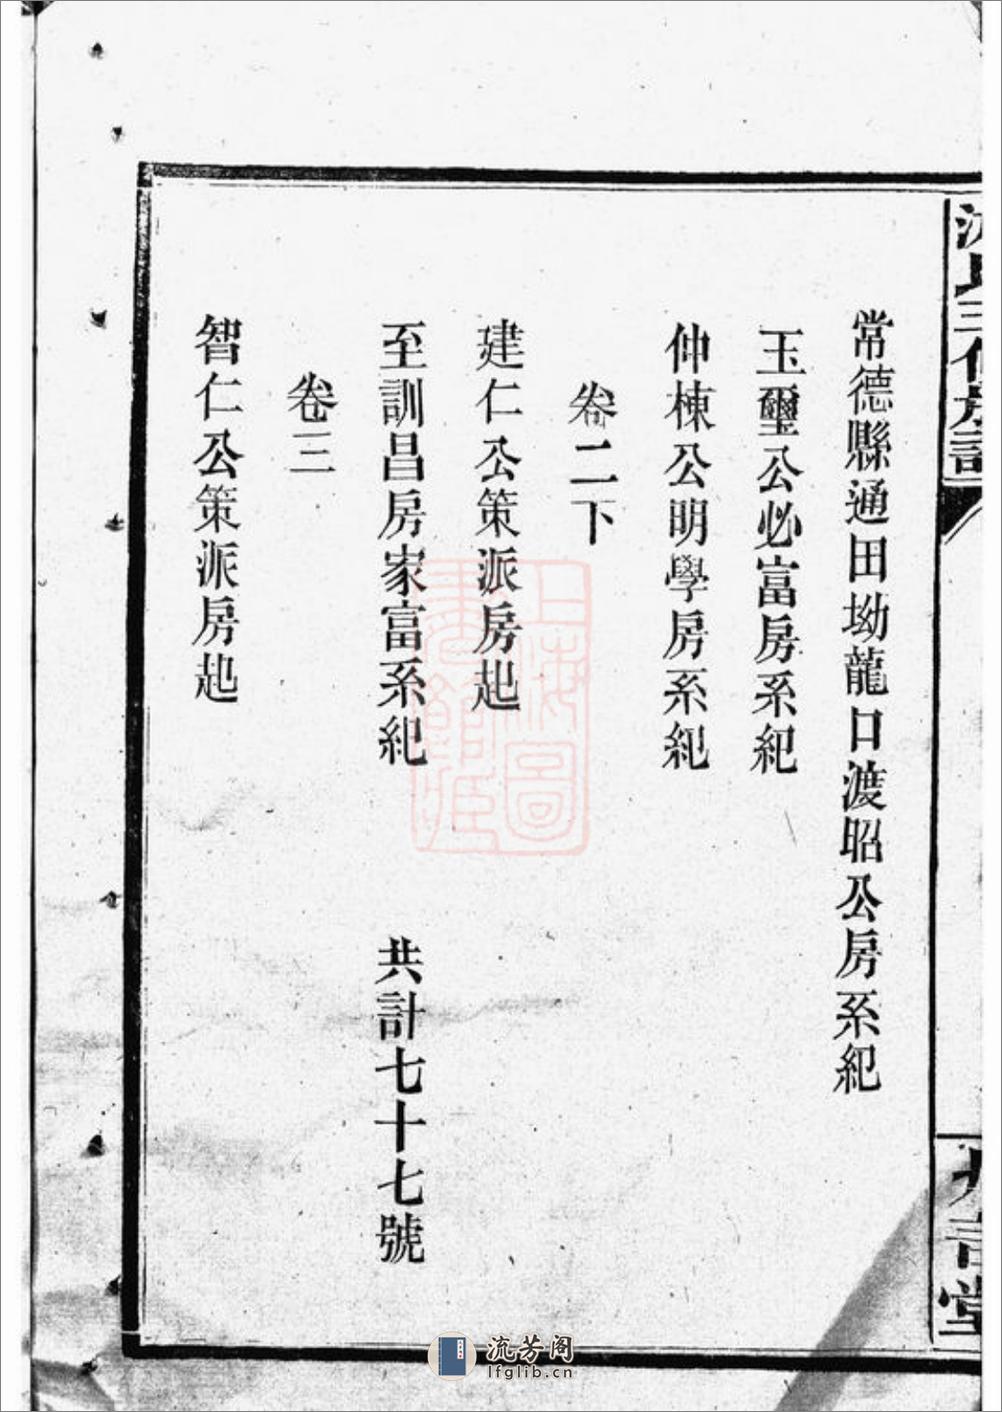 常德縣通田坳龍口渡昭公房系紀
玉璽公必富房系紀
仲棟公明學房系紀
卷二下
建仁公策派房起
至訓昌房家富系紀 共計七十七號
卷三
智仁公策派房起
流芳阁
lfglib.cn